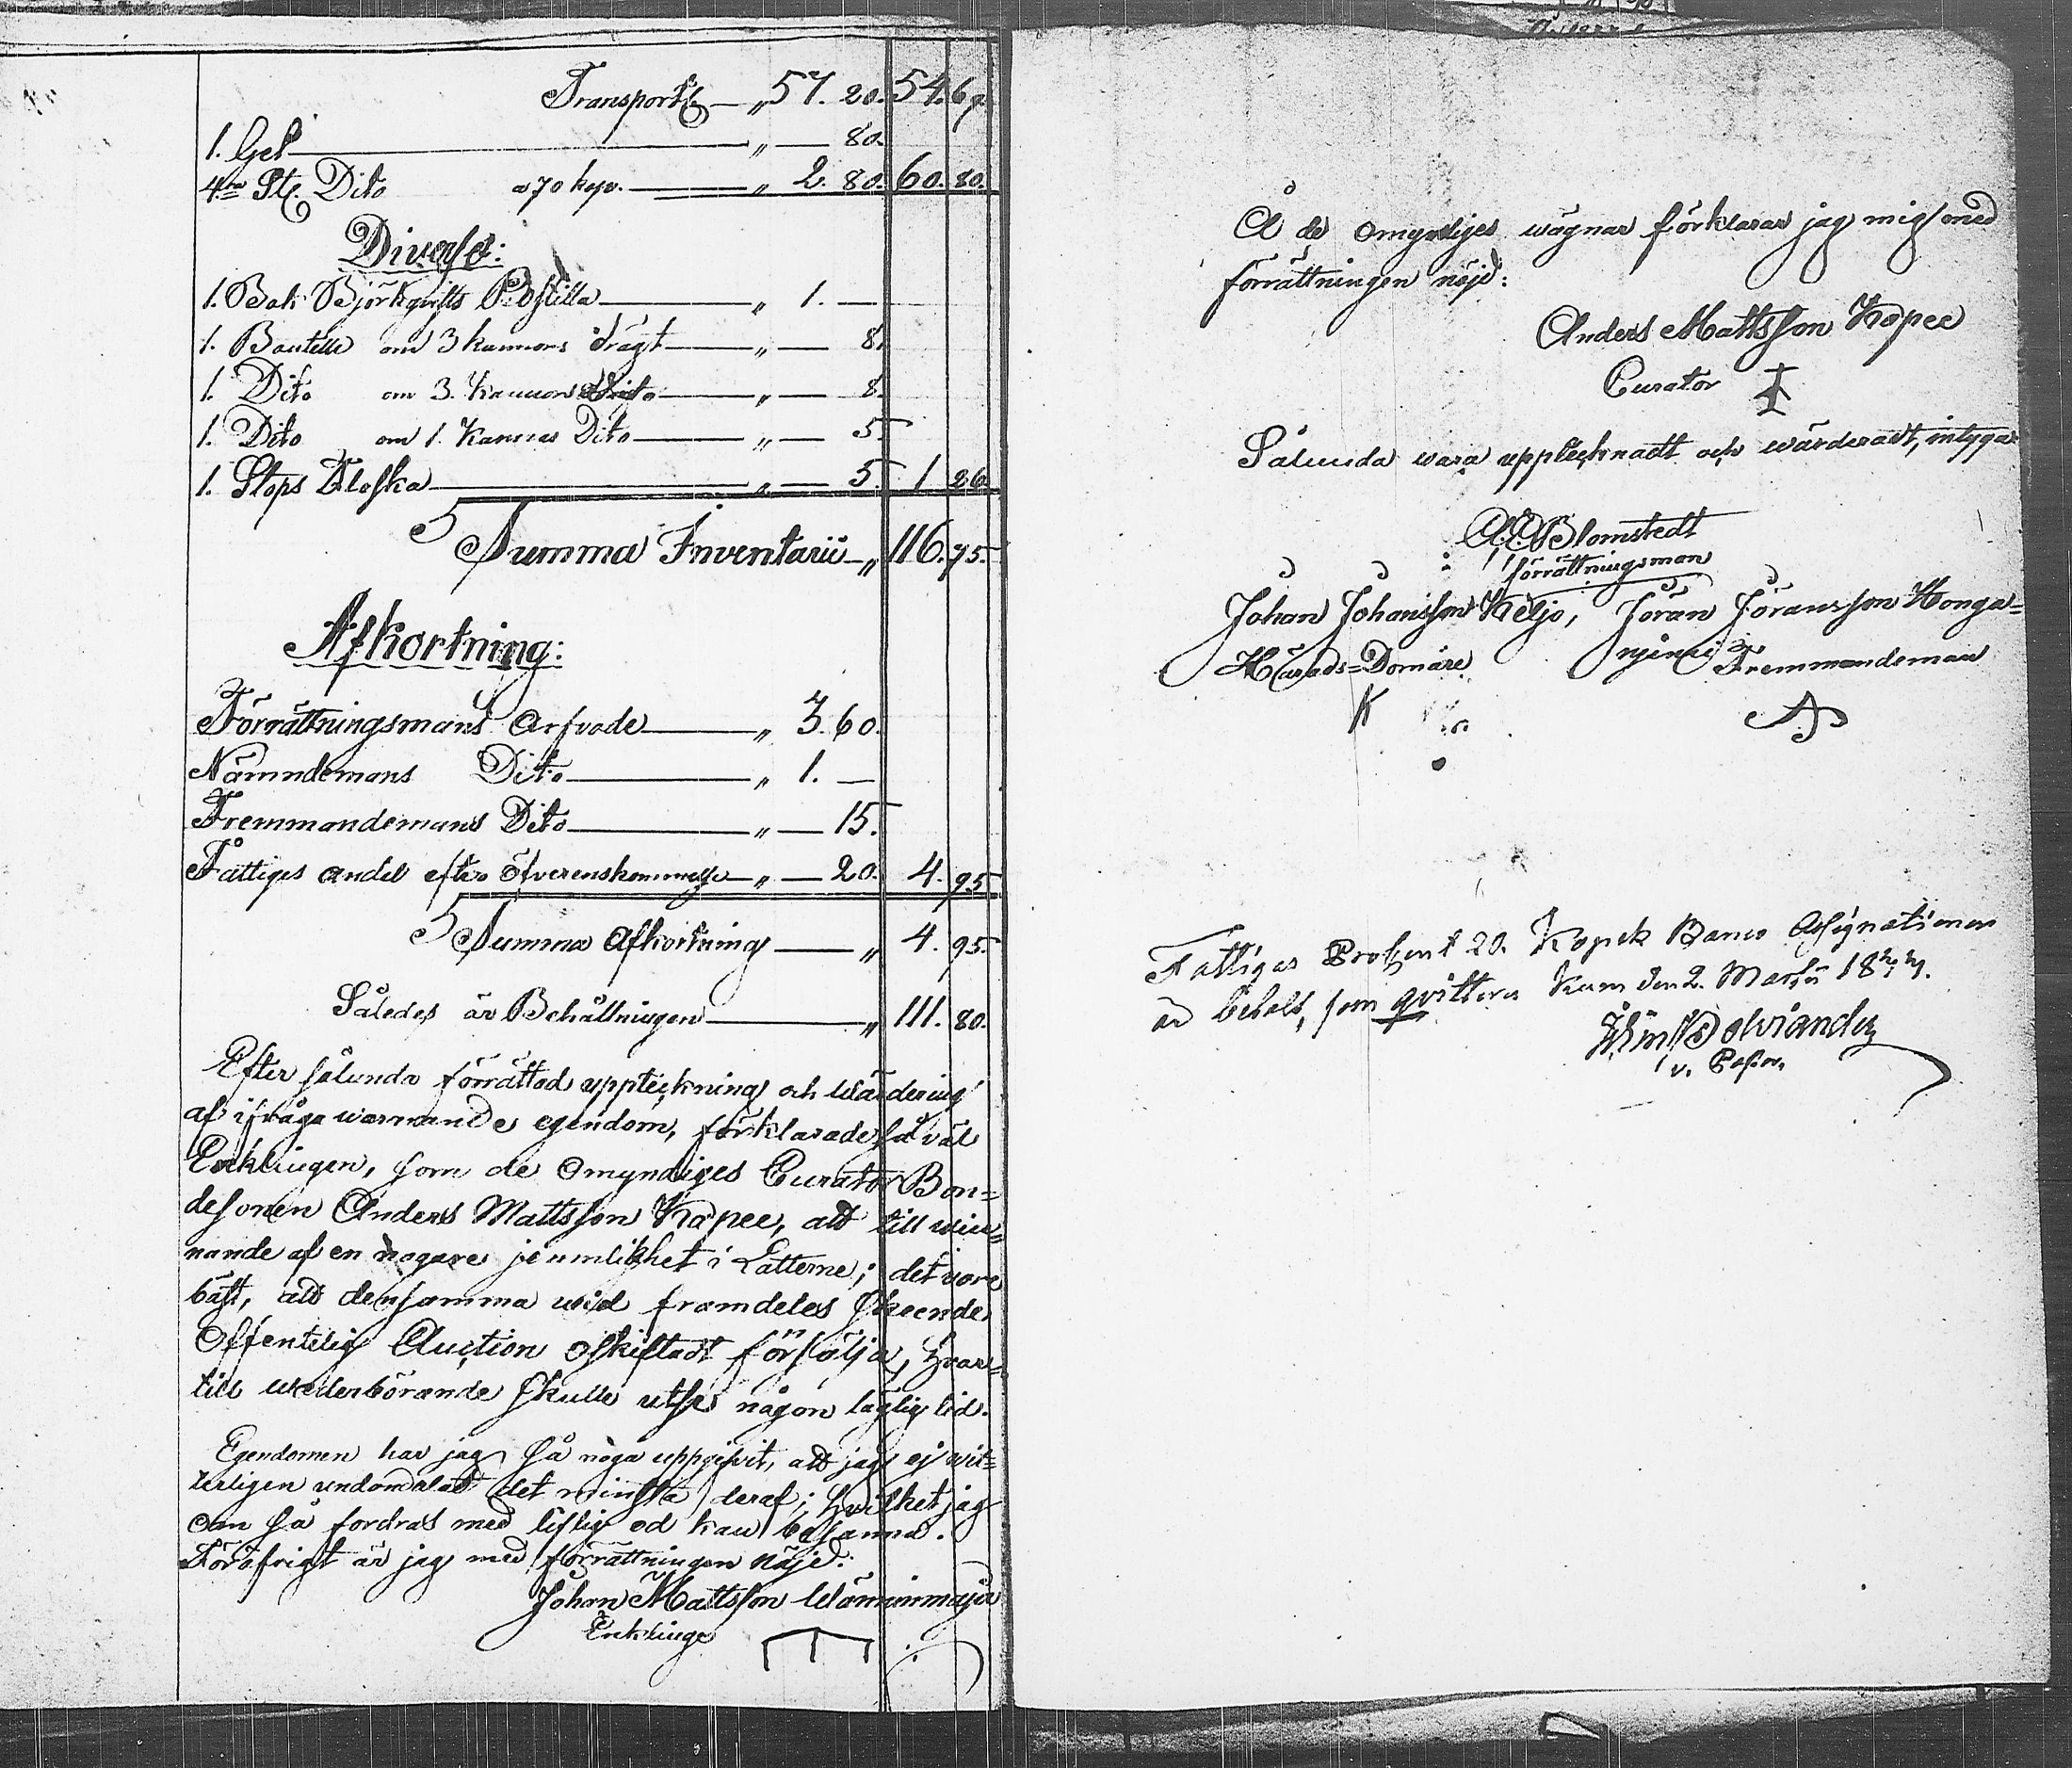 Transport „ 57. 20. 54. 69.
1. Get „ — 80.
4ra St. Dito a 70 kop. „ 2. 80. 60. 80.
Diverse:
1. Bok Björkqvists Postilla „ 1. —
1. Boutelle om 3 kannors drägt „ — 8.
1. Dito om 3. Kannors Dito „ — 8.
1. Dito om 1. Kannas Dito „ — 5.
1. Stops Flaska „ — 5. 1 26.
Summa Inventarii „ 116. 75.
Afkortning:
Förrättningsmans Arfvode „ 3. 60.
Nämndemans Dito „ 1. —
Fremmandemans Dito „ — 15.
Fattiges andel efter öfverenskommelse „ — 20. 4. 95
Summa Afkortning „ 4. 95.
Således är Behållningen „ 111. 80.
Efter sålunda förrättad uppteckning och Värdering
af ifrågawarande egendom, förklarade så väl
Enklingen, som de Omyndiges Curator Bon=
desonen Anders Mattsson Kopee, att till win=
nande af en nogare jemnlikhet i Lotterne; det vore
bäst, att densamma wid framdeles skeende
Offentelig Auction oskiftadt försälja, hvar=
till wederbörande skulle utse någon läglig tid.
Egendomen har jag så noga uppgifvit, att jag ej wit=
terligen undandolt det minsta deraf; hvilket jag
om så fordras med liflig ed kan besanna.
Föröfrigt är jag med förrättningen nöjd:
Johan Mattsson
Enklinge
Å de Omyndiges wägnar förklarar jag mig med
förrättningen nöjd:
Anders Mattsson Kopee
Curator
Sålunda wara upptecknadt och wärderadt, intyga
Blomstedt
förrättningsman
Johan Johansson Keljo, Jöran Jöransson Honga=
Härads=Domare Fremmandeman
K
Fattiges Procent 20. Kopek Banco Assignationer
är behålt, som qvitteras den 2. Martii 18
v. Pastor.